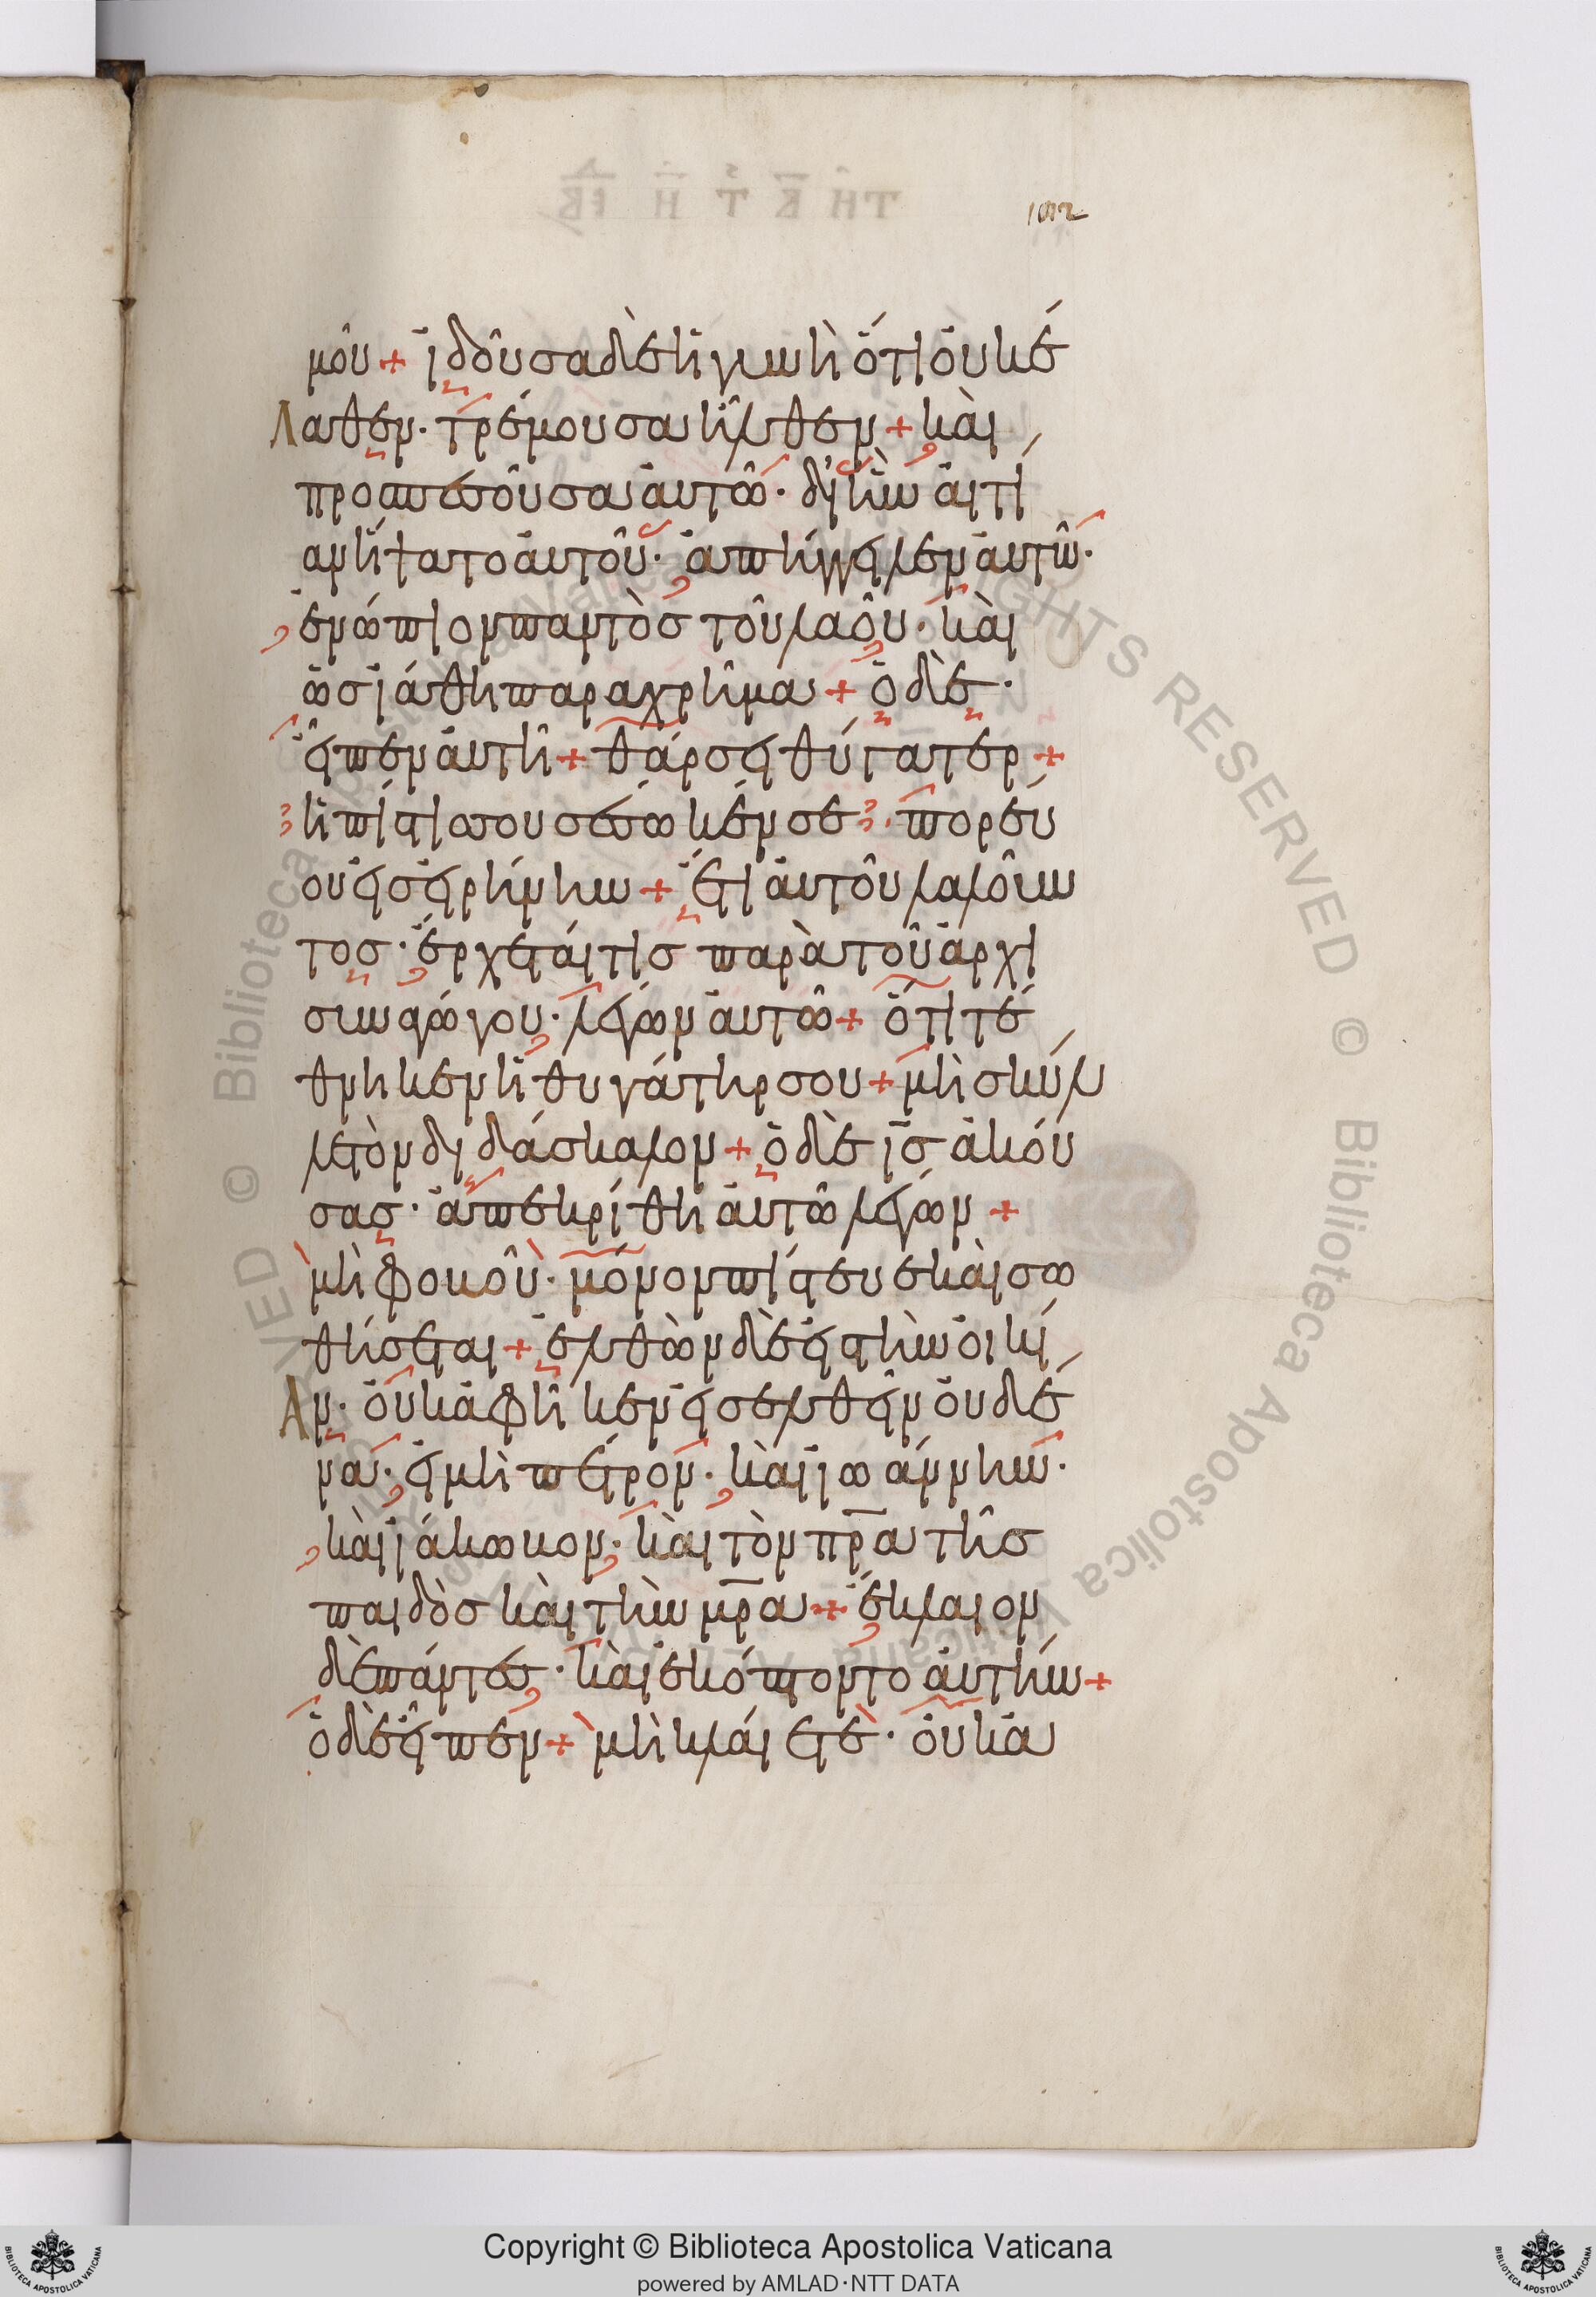 102
μοῦ + ἰδοῦσα δὲ ἡ γυνὴ ὅτι οὐκ ἔ
λαθεν · τρέμουσα ἦλθεν + καὶ
προσπεσοῦσα αὐτῶ · δι ἣν αἰτί
αν ἥψατο αὐτοῦ · ἀπήγγειλεν αὐτῶ ·
ἐνώπιον παντὸς τοῦ λαοῦ · καὶ
ὡς ἰάθη παραχρῆμα + ὁ δὲ ·
εἶπεν αὐτῆ + θάρσει θύγατερ +
ἡ πίστις σου σέσωκέν σε · πορεύ
ου εἰς εἰρήνην + ἔτι αὐτοῦ λαλοῦν
τος · ἔρχεταί τις παρὰ τοῦ ἀρχι
συναγώγου · λέγων αὐτῶ + ὅτι τέ
θνηκεν ἡ θυγάτηρ σου + μὴ σκύλ
λε τὸν διδάσκαλον + ὁ δὲ ις ἀκού
σας · ἀπεκρίθη αὐτῶ λέγων +
μὴ φοβοῦ · μόνον πίστευε καὶ σω
θήσεται + ἐλθὼν δὲ εἰς τὴν οἰκί
αν · οὐκ ἀφῆκεν εἰσελθεῖν οὐδέ
να · εἰ μὴ πέτρον · καὶ ἰωάννην ·
καὶ ἰάκωβον · καὶ τὸν πρα τῆς
παιδὸς καὶ τὴν μρα + ἔκλαιον
δὲ πάντες · καὶ ἐκόπτοντο αὐτήν +
ὁ δὲ εἶπεν + μὴ κλαίετε · οὐκ ἀ
Copyright © Biblioteca Apostolica Vaticana
powered by AMLAD·NTT DATA